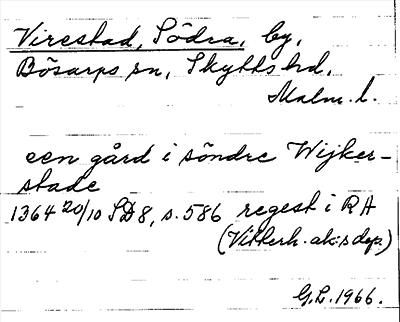 Virestad, Södra, by,
Bösarps sn, Skytts hd,
Malm. l.
een gård i söndre Wijker-
stade
1364 20/10 SD 8, s. 586 regest i RA
(Vitterh. ak:s dep.)
G.L. 1966.